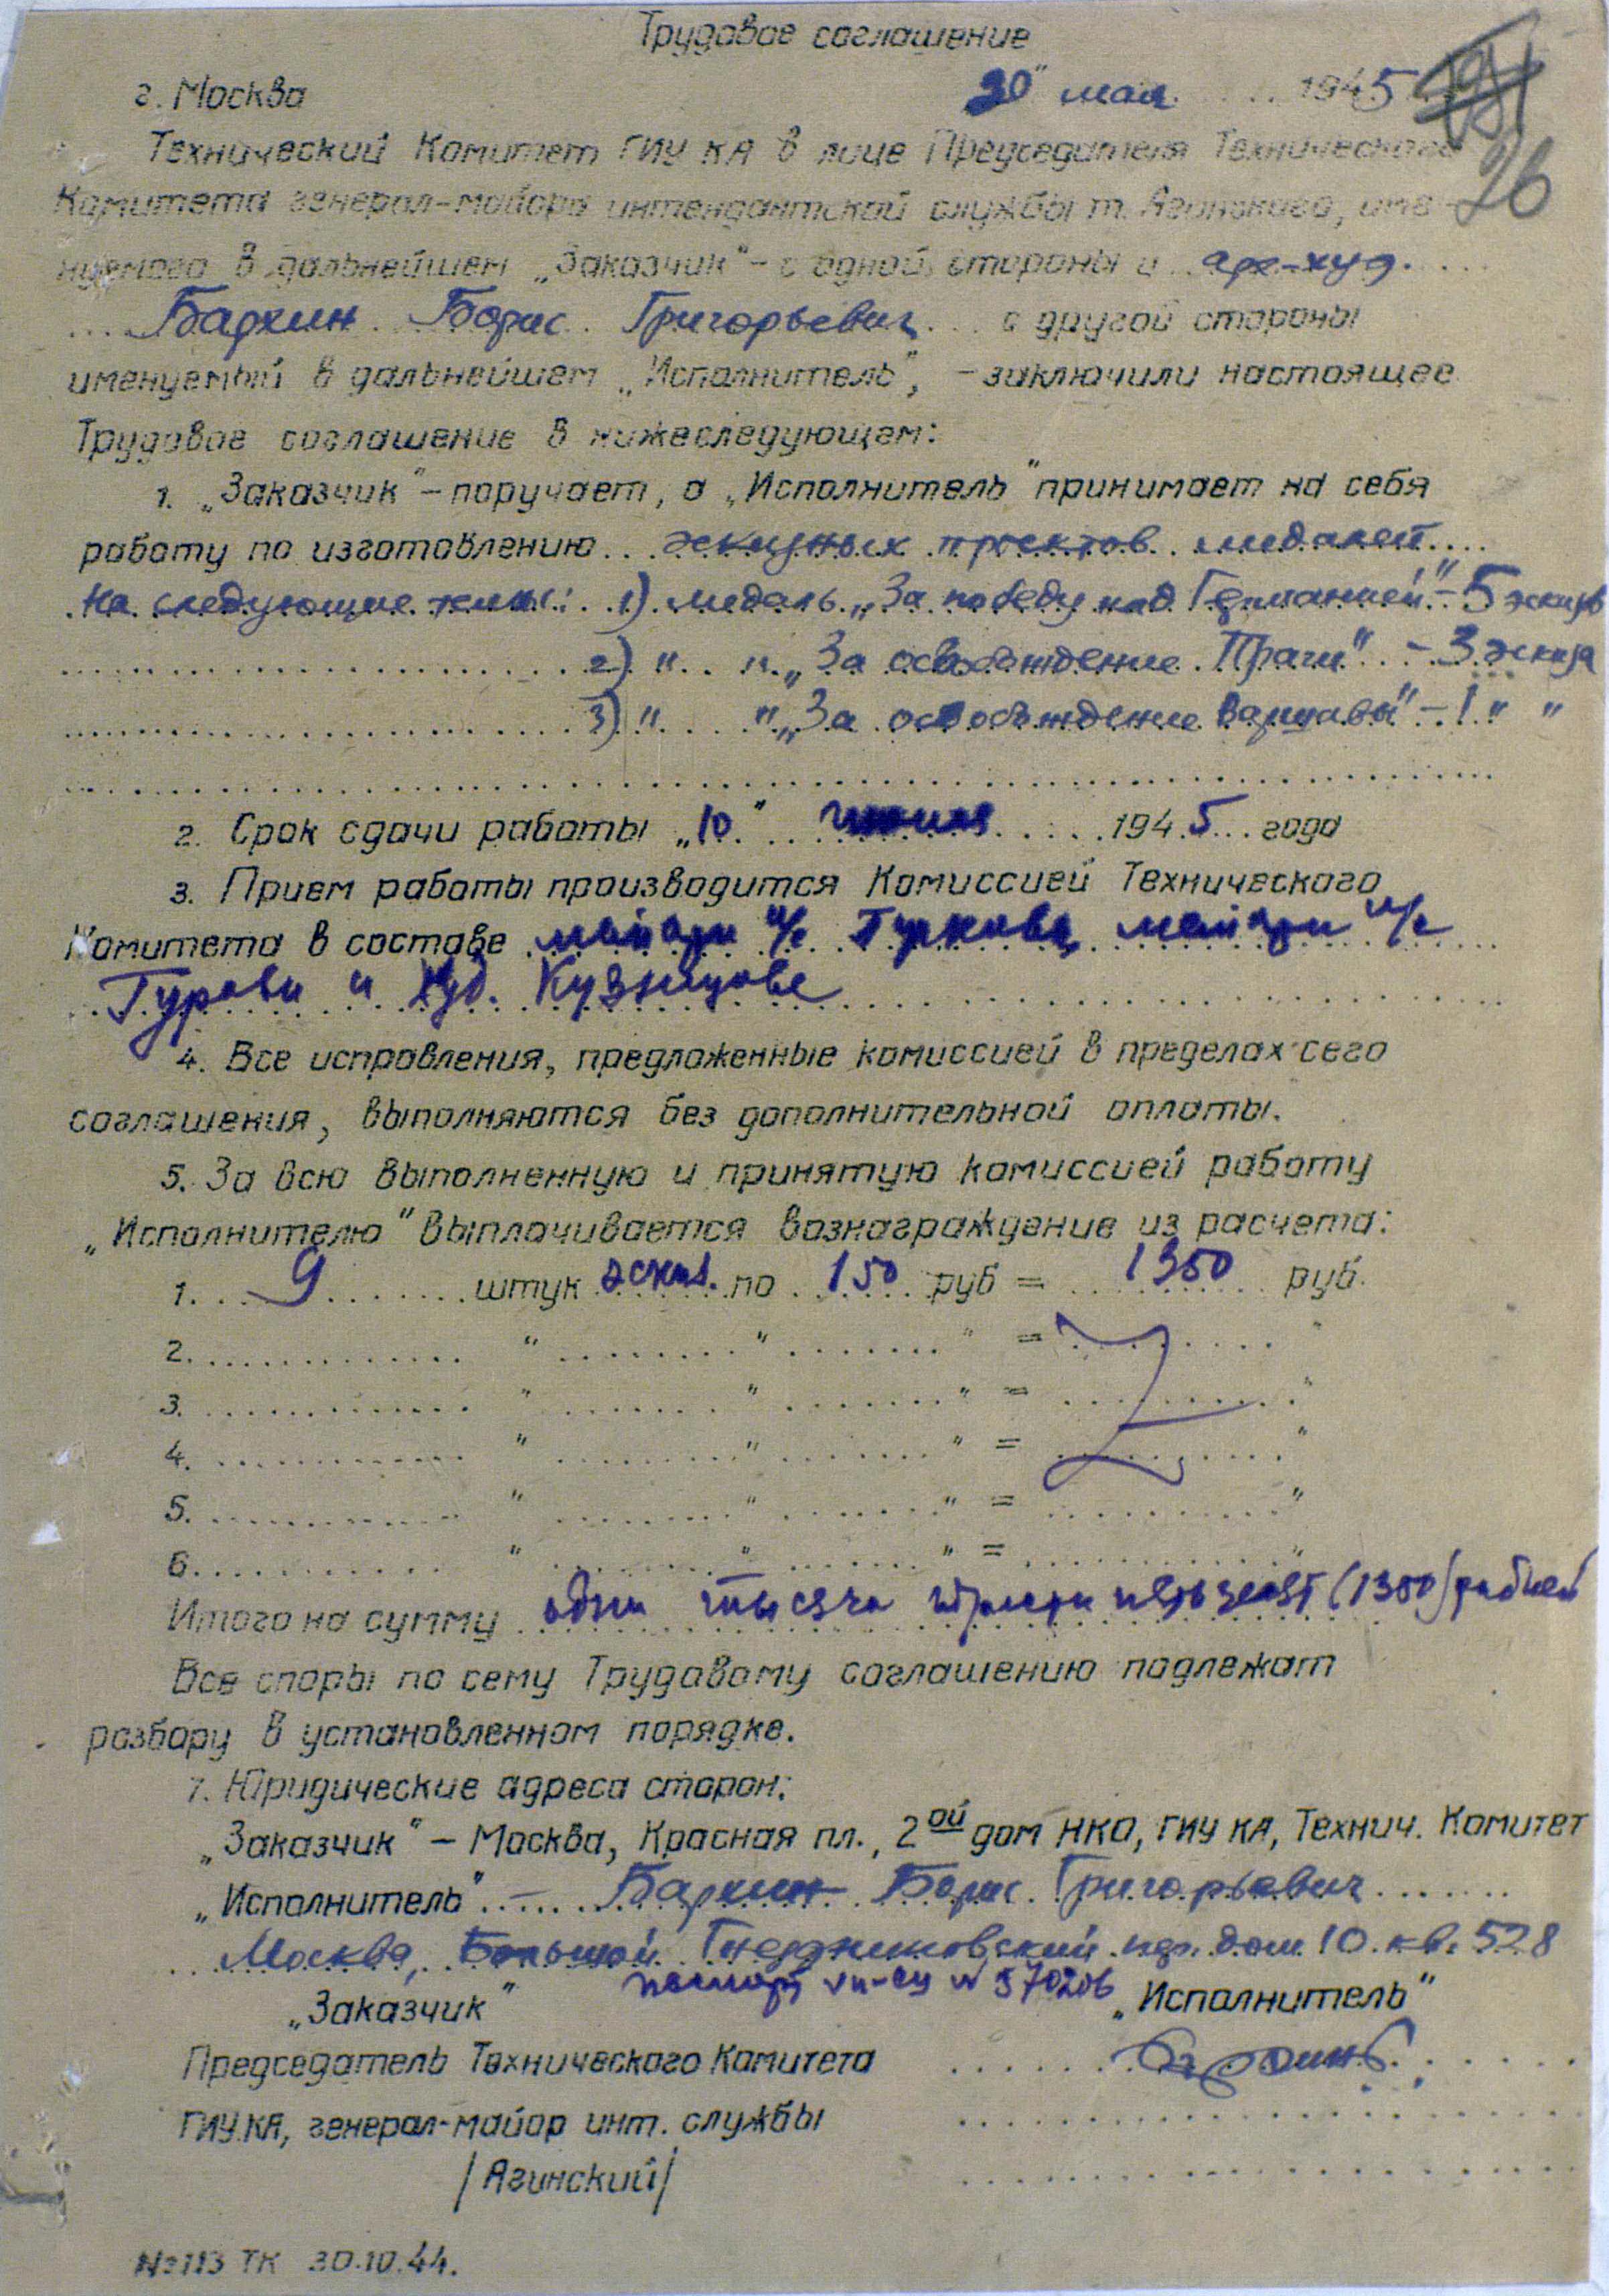 Трудовое соглашение
г. Москва 30" мая 1945
Технический Комитет ГИУ КА в лице Председателя Технического
26
Комитета генерал-майора интендантской службы т. Агинского, име-
нуемого в дальнейшем „Заказчик" - с одной стороны и арх-худ.
Бархин Борис Григорьевич с другой стороны
именуемый в дальнейшем „Исполнитель", - заключили настоящее
Трудовое соглашение в нижеследующем:
1. „Заказчик" - поручает, а „Исполнитель" принимает на себя
работу по изготовлению эскизных проектов медалей
на следующие темы: 1) медаль „За победу над Германией" - 5 эскизов
2) " " „За освобождение Праги" - 3 эскиза
3) " " „За освобождение Варшавы" - 1 " "
2. Срок сдачи работы „10" июня 1945 года
3. Прием работы производится Комиссией Технического
Комитета в составе майора и/с Гуркова, майора и/с
Гурова и худ. Кузнецова
4. Все исправления, предложенные комиссией в пределах сего
соглашения, выполняются без дополнительной оплаты.
5. За всю выполненную и принятую комиссией работу
„Исполнителю" выплачивается вознаграждение из расчета:
1. 9 штук эскиз. по 150 руб = 1350 руб.
2. " " " = "
3. " " " = "
4. " " " = "
5. " " " = "
6. " " " = "
Итого на сумму одна тысяча триста пятьдесят (1350) рублей
Все споры по сему Трудовому соглашению подлежат
разбору в установленном порядке.
7. Юридические адреса сторон:
„Заказчик" - Москва, Красная пл., 2ой дом НКО, ГИУ КА, Технич. Комитет
„Исполнитель" - Бархин Борис Григорьевич
Москва, Большой Гнездниковский пер. дом 10 кв. 528
паспорт № 570206
„Заказчик" „Исполнитель"
Председатель Технического Комитета Бархин
ГИУ.КА, генерал-майор инт. службы
/Агинский/
№113 ТК 30.10.44.